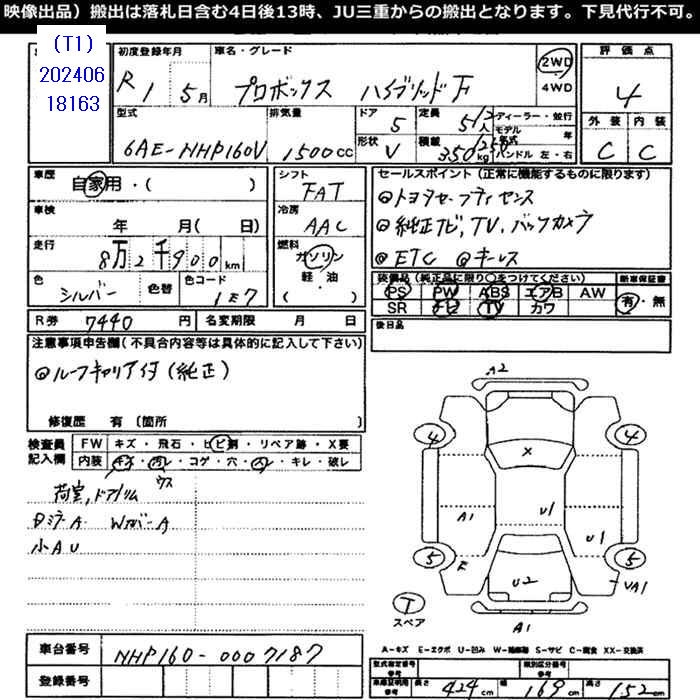 映像出品）搬出は落札日含む4日後13時、JU三重からの搬出となります。下見代行不可。
(T1)
202406
18163
初度登録年月
R1 5月
車名・グレード
プロボックス ハイブリッド F
2WD
4WD
評価点
4
型式
6AE-NHP160V
排気量
1500CC
ドア
5
形状
V
定員
5/2人
積載
350/250kg
ディーラー・並行
モデル年式 年
ハンドル 左・右
外装
内装
C
C
車歴
自家用・( )
シフト
FAT
車検
年 月( 日)
冷房
AAC
走行
8万2千900km
燃料
ガソリン
軽・油
( )
色
シルバー
色替
色コード
1E7
R券 7440円
名変期限 月 日
セールスポイント（正常に機能するものに限ります）
◎トヨタセーフティセンス
◎純正ナビ, TV, バックカメラ
◎ETC ◎キーレス
装備品（純正品に限り○をつけてください）
PS PW ABS エアB AW
SR ナビ TV カワ
新車保証書
有・無
後日品
注意事項申告欄(不具合内容等は具体的に記入して下さい)
◎ルーフキャリア付(純正)
修復歴 有〔箇所
検査員記入欄
FW キズ・飛石・ヒビ割・リペア跡・X要
内装 キズ・汚レ・コゲ・穴・スレ・キレ・破レ
ウス
荷室, ドアトリム
Dミラー A Wカバー A
小AU
A2
4
4
X
A1
U1
U1
5
5
E
U2
UA1
T
スペア
A1
A-キズ E-エクボ U-凹み W-補修跡 S-サビ C-腐食 XX-交換済
車台番号
NHP160-0007187
登録番号
型式指定番号
参考
類別区分番号
参考
車庫証明用
参考
長さ 424cm
幅 169cm
高さ 152cm